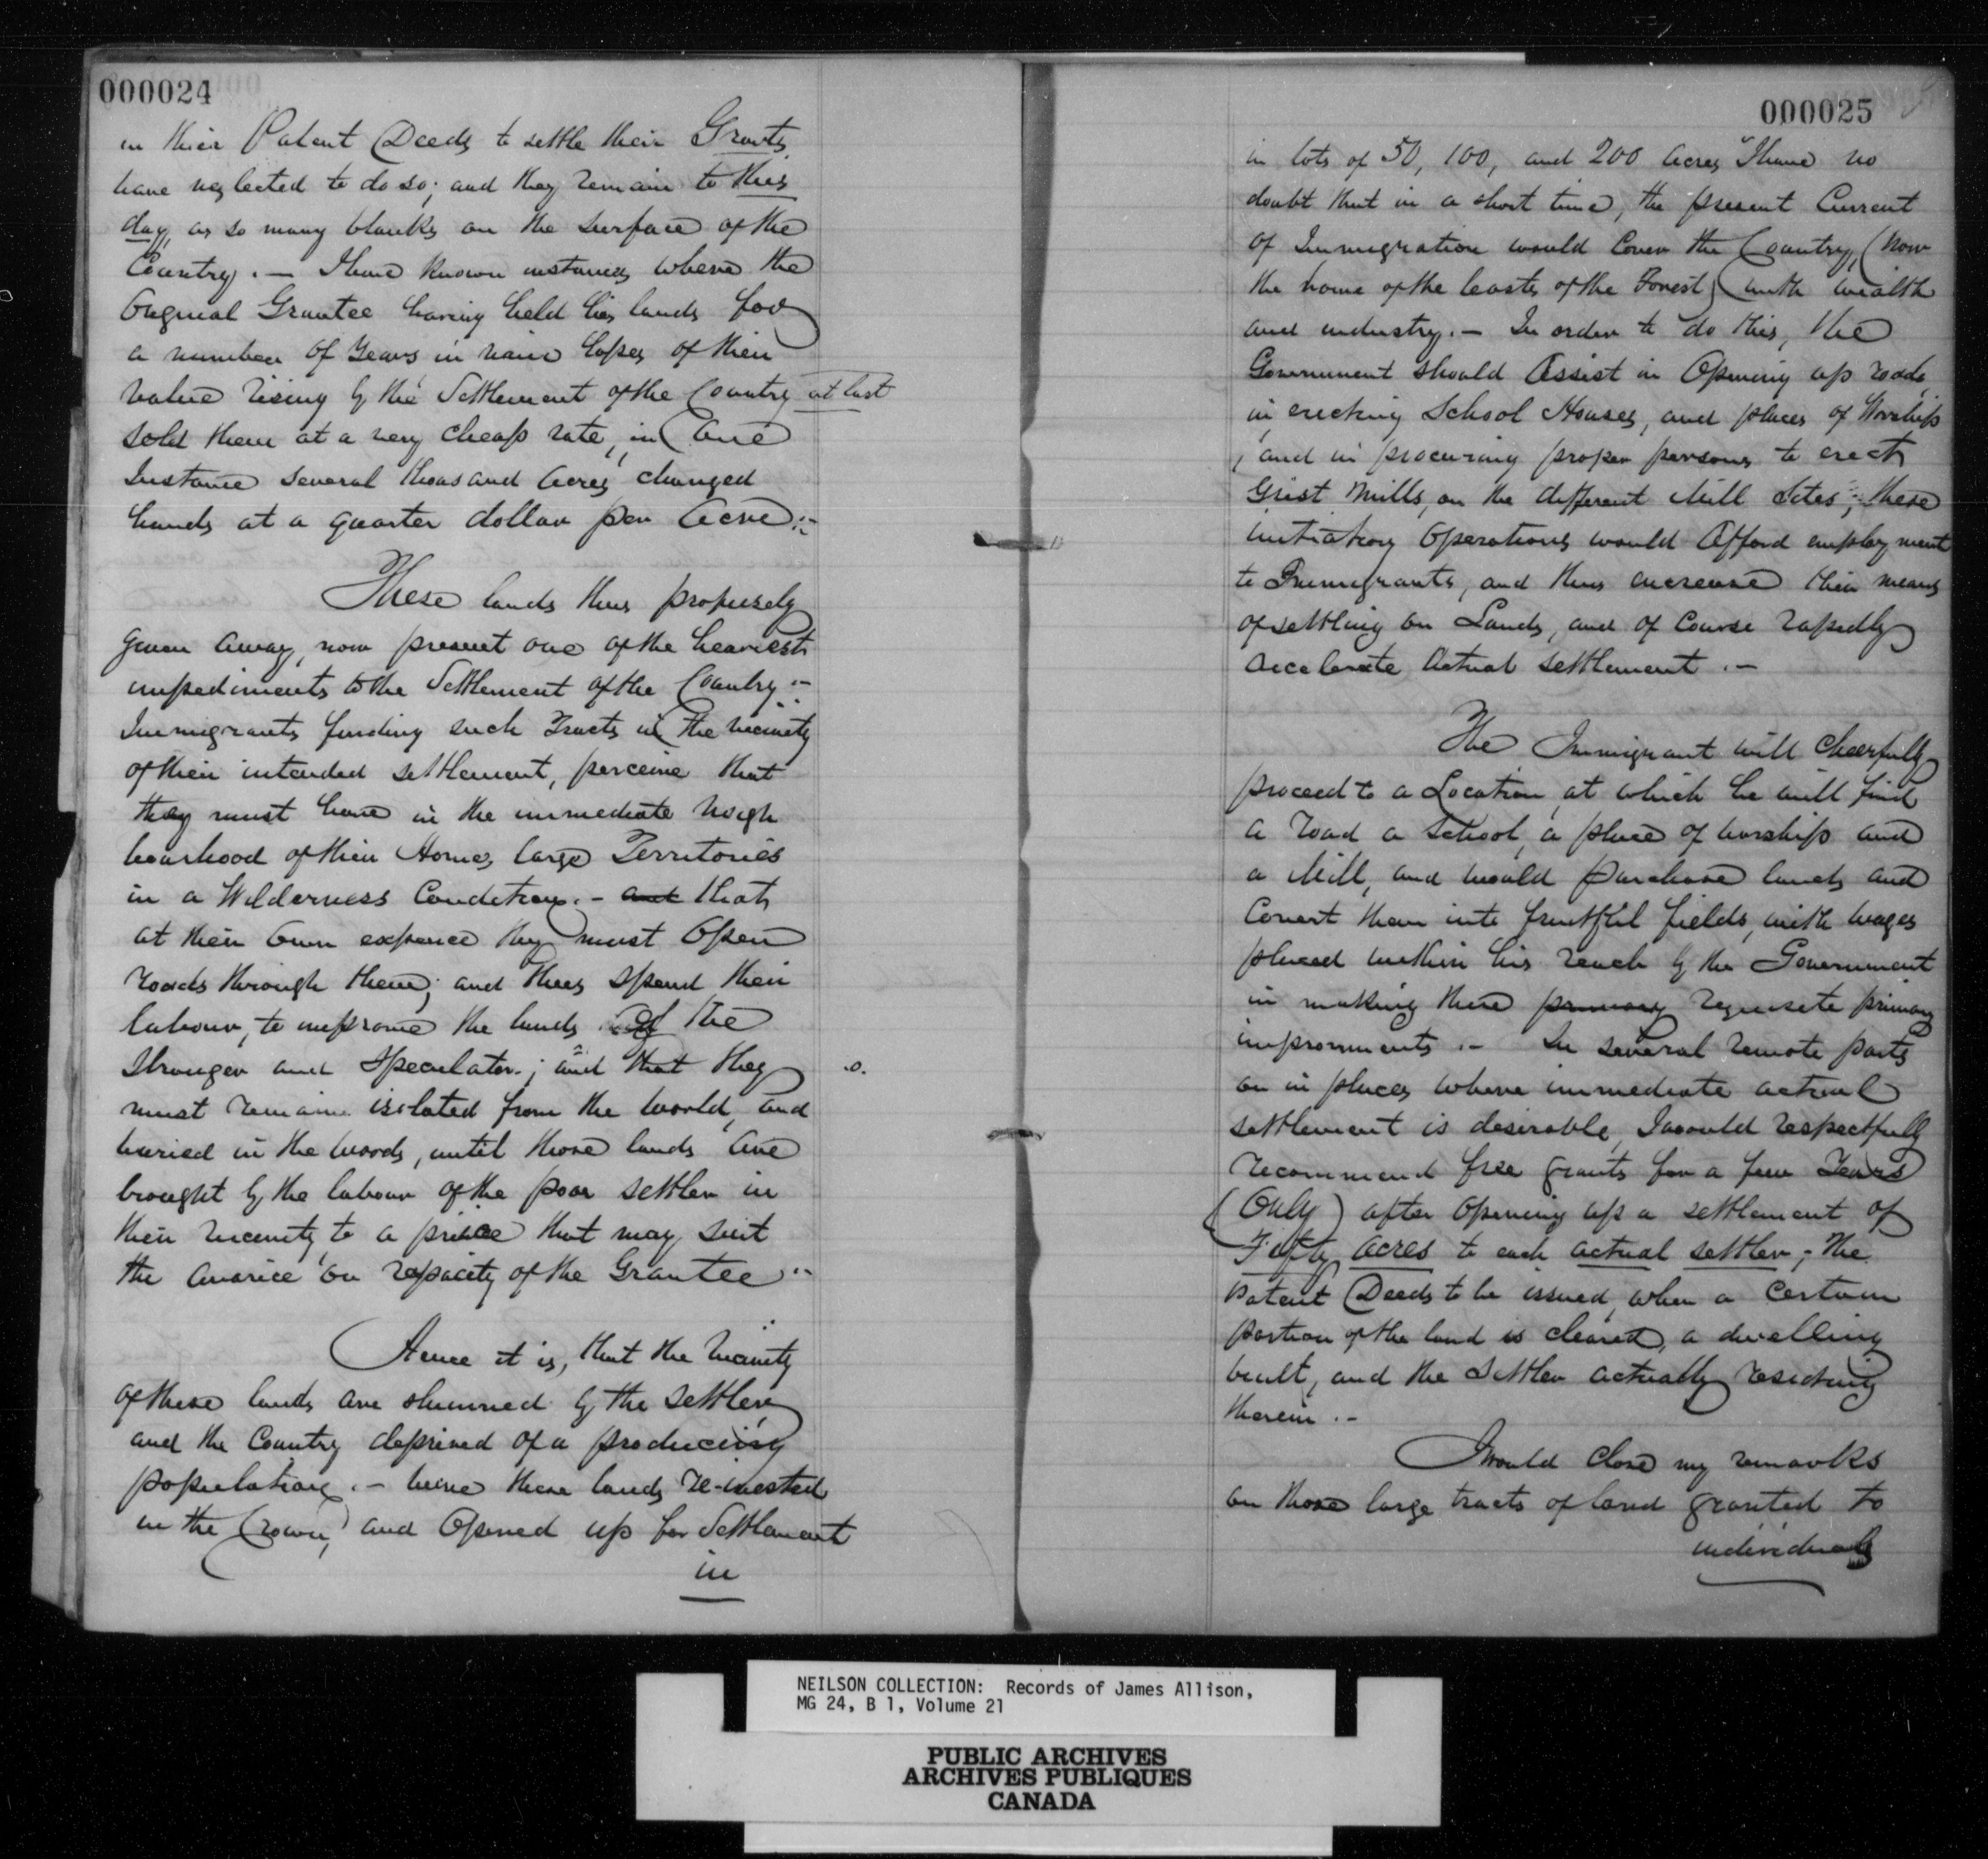 000024
in their Patent Deeds to settle their Grants
have neglected to do so; and they remain to this
day, as so many blanks on the surface of the
Country. — I have known instances where the
Original Grantee having held his lands for
a number of Years in vain hopes of their
value rising by the Settlement of the Country at last
sold them at a very cheap rate, in one
Instance several thousand acres changed
hands at a quarter dollar per acre.-
These lands thus profusely
given away, now present one of the heaviest
impediments to the Settlement of the Country.-
Immigrants finding such Tracts in the vicinity
of their intended settlement, perceive that
they must have in the immediate neigh
bourhood of their Homes, large Territories
in a Wilderness Condition. - and that
at their own expence they must open
roads through them; and thus spend their
labour, to improve the lands of the
Stranger and Speculator.; and that they
must remain isolated from the world, and
buried in the woods, until those lands are
brought by the labour of the poor settler in
their vicinity to a price that may suit
the avarice or rapacity of the Grantee.-
Hence it is, that the vicinity
of these lands are shunned by the settlers
and the Country deprived of a producing
population. - were these lands re-invested
in the Crown, and opened up for Settlement
in
000025
in lots of 50, 100, and 200 acres, I have no
doubt that in a short time, the present Current
of Immigration would cover the Country, (now
the home of the beasts of the Forest) with wealth
and industry. - In order to do this, the
Government should assist in opening up roads,
in erecting School Houses, and places of Worship
, and in procuring proper persons to erect
Grist Mills, on the different Mill Sites; these
initiatory operations would afford employment
to Immigrants, and thus increase their means
of settling on Lands, and of course rapidly
accelerate actual settlement. -
The Immigrant will cheerfully
proceed to a Location, at which he will find
a road a school, a place of worship and
a Mill, and would purchase lands and
convert them into fruitful fields, with wages
placed within his reach by the Government
in making these primary requisite primary
improvements. - In several remote parts
or in places where immediate actual
settlement is desirable, I would respectfully
recommend free grants for a few Years
(Only) after opening up a settlement of
Fifty acres to each actual settler; the
Patent Deeds to be issued, when a certain
portion of the land is cleared, a dwelling
built, and the Settler actually residing
therein. -
I would close my remarks
on those large tracts of land granted to
individuals
NEILSON COLLECTION: Records of James Allison,
MG 24, B 1, Volume 21
PUBLIC ARCHIVES
ARCHIVES PUBLIQUES
CANADA